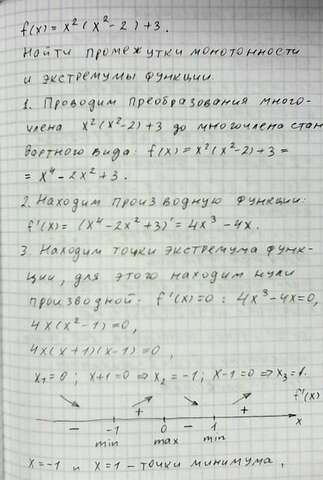 f(x) = x²(x²-2)+3.
Найти промежутки монотонности
и экстремумы функции.
1. Проводим преобразования много-
члена x²(x²-2)+3 до многочлена стан-
дартного вида: f(x) = x²(x²-2)+3 =
= x⁴-2x²+3.
2. Находим производную функции:
f'(x) = (x⁴-2x²+3)' = 4x³-4x.
3. Находим точки экстремума функ-
ции, для этого находим нули
производной. f'(x)=0 : 4x³-4x=0,
4x(x²-1)=0,
4x(x+1)(x-1)=0,
x₁=0; x+1=0 ⇒ x₂=-1; x-1=0 ⇒ x₃=1.
↘ ↗ ↘ ↗ f'(x)
- + - + 
-1 0 1 x
min max min
x=-1 и x=1 - точки минимума,